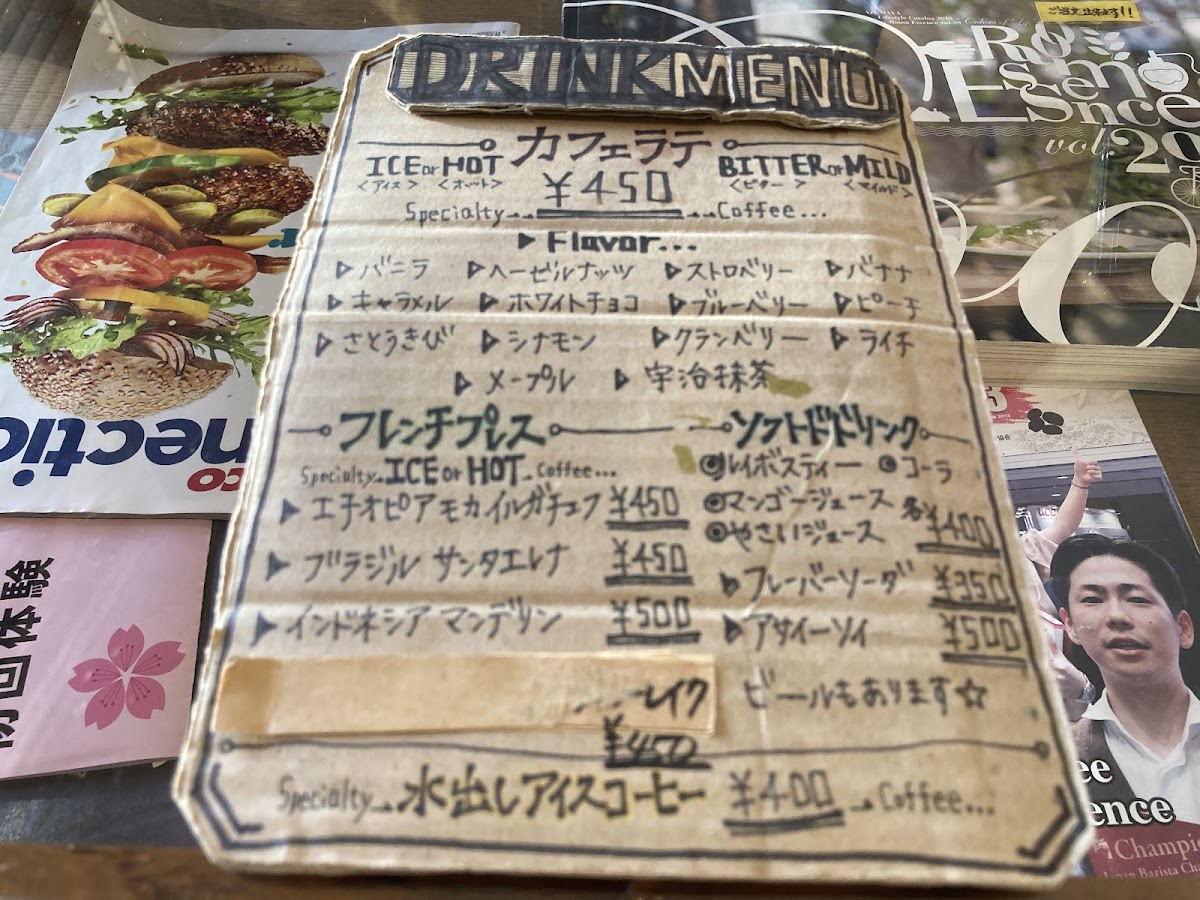 DRINKMENU
カフェラテ
ICE or HOT
BITTER or MILD
<アイス> <ホット>
<ビター> <マイルド>
¥450
Specialty
Coffee...
▶ Flavor...
▷バニラ ▷ヘーゼルナッツ ▷ストロベリー ▷バナナ
▷キャラメル ▷ホワイトチョコ ▷ブルーベリー ▷ピーチ
▷さとうきび ▷シナモン ▷クランベリー ▷ライチ
▷メープル ▷宇治抹茶
フレンチプレス
Specialty ICE or HOT Coffee...
▶エチオピアモカイルガチェフ ¥450
▶ブラジル サンタエレナ ¥450
▶インドネシア マンデリン ¥500
レイク
¥450
ソフトドドリンク
◎ルイボスティー ◎コーラ
◎マンゴージュース 各
◎やさいジュース ¥400
▷フレーバーソーダ ¥350
▶アサイーソイ ¥500
ビールもあります☆
Specialty 水出しアイスコーヒー ¥400 Coffee...
nectio
co
初回体験
ご注文は毎時!!
Room
Essence
vol.20
ee
ence
Champi